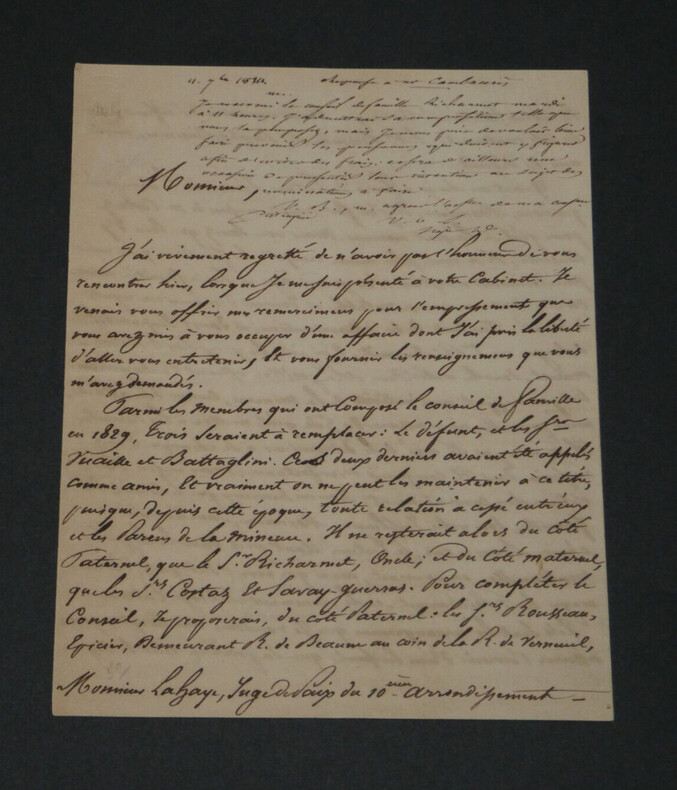 11. 7bre 1834 Réponse à M. Cambacérès
M.
J'ai convoqué le conseil de famille Richarmet mardi
à 11 heures. J'adopterai la composition telle que
vous la proposez, mais je vous prie de vouloir bien
faire prévenir les personnes qui doivent y figurer
afin d'éviter des frais.
nominations à faire
Monsieur,
J'ai vivement regretté de n'avoir pas l'honneur de vous
rencontrer hier, lorsque Je me suis présenté à votre Cabinet. Je
venais vous offrir mes remercimens pour l'empressement que
vous avez mis à vous occuper d'une affaire dont J'ai pris la liberté
d'aller vous entretenir, Et vous fournir les renseignemens que vous
m'avez demandés.
Parmi les membres qui ont Composé le conseil de famille
en 1829, Trois seraient à remplacer: Le défunt, et les Srs
Vuaille et Battaglini. Ces deux derniers avaient été appelés
comme amis, Et vraiment on ne peut les maintenir à ce titre,
puisque, depuis cette époque, toute relation a cessé entr'eux
et les Parens de la mineure. Il ne resterait alors du Côté
Paternel, que le Sr. Richarmet, Oncle; et du Côté maternel,
que les Srs Costaz Et Savay-guerraz. Pour compléter le
Conseil, Je proposerais, du côté Paternel: les Srs Rousseau,
Epicier, Demeurant R. de Beaune au coin de la R. de Verneuil,
Monsieur Lahaye, Juge de Paix du 10ème arrondissement —